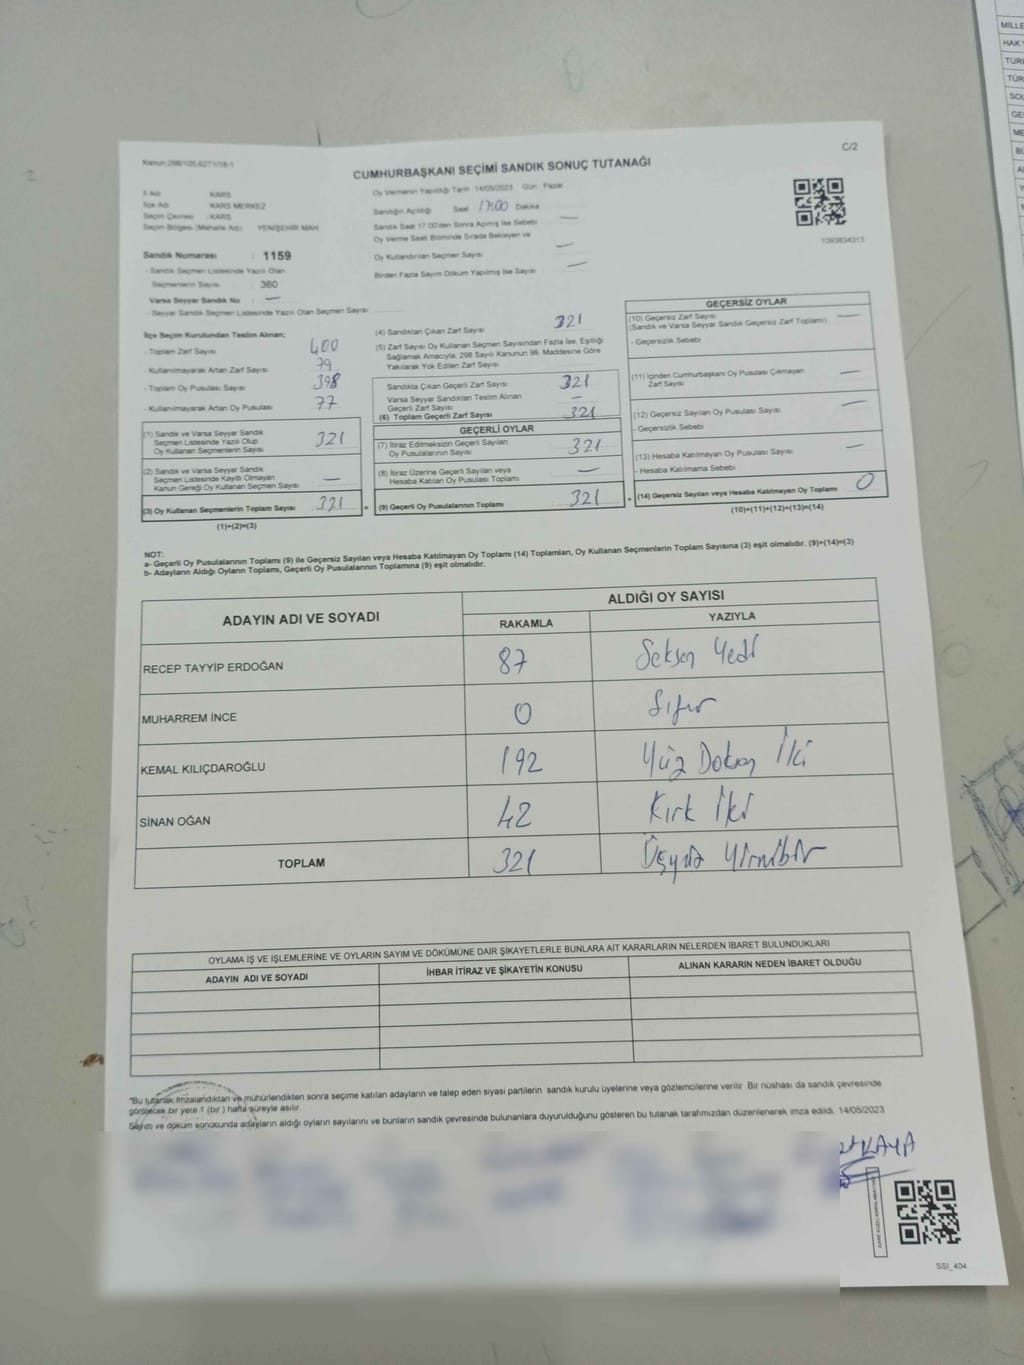 Kanun:298/105,6271/18-1
C/2
CUMHURBAŞKANI SEÇİMİ SANDIK SONUÇ TUTANAĞI
İl Adı KARS
İlçe Adı KARS MERKEZ
Seçim Çevresi :KARS
Seçim Bölgesi (Mahalle Adı) YENİŞEHİR MAH.
Sandık Numarası : 1159
- Sandık Seçmen Listesinde Yazılı Olan
Seçmenlerin Sayısı : 360
Varsa Seyyar Sandık No : —
- Seyyar Sandık Seçmen Listesinde Yazılı Olan Seçmen Sayısı
Oy Vermenin Yapıldığı Tarih 14/05/2023 Gün Pazar
Sandığın Açıldığı Saat 17:00 Dakika
Sandık Saat 17.00'den Sonra Açılmış İse Sebebi —
Oy Verme Saati Bitiminde Sırada Bekleyen ve
Oy Kullandırılan Seçmen Sayısı —
Birden Fazla Sayım Döküm Yapılmış İse Sayısı —
İlçe Seçim Kurulundan Teslim Alınan;
- Toplam Zarf Sayısı 400
- Kullanılmayarak Artan Zarf Sayısı 79
- Toplam Oy Pusulası Sayısı 398
- Kullanılmayarak Artan Oy Pusulası 77
(1) Sandık ve Varsa Seyyar Sandık
Seçmen Listesinde Yazılı Olup
Oy Kullanan Seçmenlerin Sayısı 321
(2) Sandık ve Varsa Seyyar Sandık
Seçmen Listesinde Kayıtlı Olmayan
Kanun Gereği Oy Kullanan Seçmen Sayısı —
(3) Oy Kullanan Seçmenlerin Toplam Sayısı 321
(1)+(2)=(3)
(4) Sandıktan Çıkan Zarf Sayısı 321
(5) Zarf Sayısı Oy Kullanan Seçmen Sayısından Fazla İse, Eşitliği
Sağlamak Amacıyla, 298 Sayılı Kanunun 98. Maddesine Göre
Yakılarak Yok Edilen Zarf Sayısı
Sandıkta Çıkan Geçerli Zarf Sayısı 321
Varsa Seyyar Sandıktan Teslim Alınan
Geçerli Zarf Sayısı —
(6) Toplam Geçerli Zarf Sayısı 321
GEÇERLİ OYLAR
(7) İtiraz Edilmeksizin Geçerli Sayılan
Oy Pusulalarının Sayısı 321
(8) İtiraz Üzerine Geçerli Sayılan veya
Hesaba Katılan Oy Pusulası Toplamı —
= (9) Geçerli Oy Pusulalarının Toplamı 321
GEÇERSİZ OYLAR
(10) Geçersiz Zarf Sayısı —
(Sandık ve Varsa Seyyar Sandık Geçersiz Zarf Toplamı)
- Geçersizlik Sebebi
(11) İçinden Cumhurbaşkanı Oy Pusulası Çıkmayan
Zarf Sayısı —
(12) Geçersiz Sayılan Oy Pusulası Sayısı —
- Geçersizlik Sebebi
(13) Hesaba Katılmayan Oy Pusulası Sayısı —
- Hesaba Katılmama Sebebi
+ (14) Geçersiz Sayılan veya Hesaba Katılmayan Oy Toplamı 0
(10)+(11)+(12)+(13)=(14)
NOT:
a- Geçerli Oy Pusulalarının Toplamı (9) ile Geçersiz Sayılan veya Hesaba Katılmayan Oy Toplamı (14) Toplamları, Oy Kullanan Seçmenlerin Toplam Sayısına (3) eşit olmalıdır. (9)+(14)=(3)
b- Adayların Aldığı Oyların Toplamı, Geçerli Oy Pusulalarının Toplamına (9) eşit olmalıdır.
ADAYIN ADI VE SOYADI ALDIĞI OY SAYISI
RAKAMLA YAZIYLA
RECEP TAYYİP ERDOĞAN 87 Seksen Yedi
MUHARREM İNCE 0 Sıfır
KEMAL KILIÇDAROĞLU 192 Yüz Doksan İki
SİNAN OĞAN 42 Kırk İki
TOPLAM 321 Üçyüz Yirmibir
OYLAMA İŞ VE İŞLEMLERİNE VE OYLARIN SAYIM VE DÖKÜMÜNE DAİR ŞİKAYETLERLE BUNLARA AİT KARARLARIN NELERDEN İBARET BULUNDUKLARI
ADAYIN ADI VE SOYADI İHBAR İTİRAZ VE ŞİKAYETİN KONUSU ALINAN KARARIN NEDEN İBARET OLDUĞU
*Bu tutanak imzalandıktan ve mühürlendikten sonra seçime katılan adayların ve talep eden siyasi partilerin sandık kurulu üyelerine veya gözlemcilerine verilir Bir nüshası da sandık çevresinde
görülecek bir yere 1 (bir ) hafta süreyle asılır.
Sayım ve döküm sonucunda adayların aldığı oyların sayılarını ve bunların sandık çevresinde bulunanlara duyurulduğunu gösteren bu tutanak tarafımızdan düzenlenerek imza edildi. 14/05/2023
KAYA
SSI_404
MİLLE
HAK
TÜR
TÜR
SOL
GE